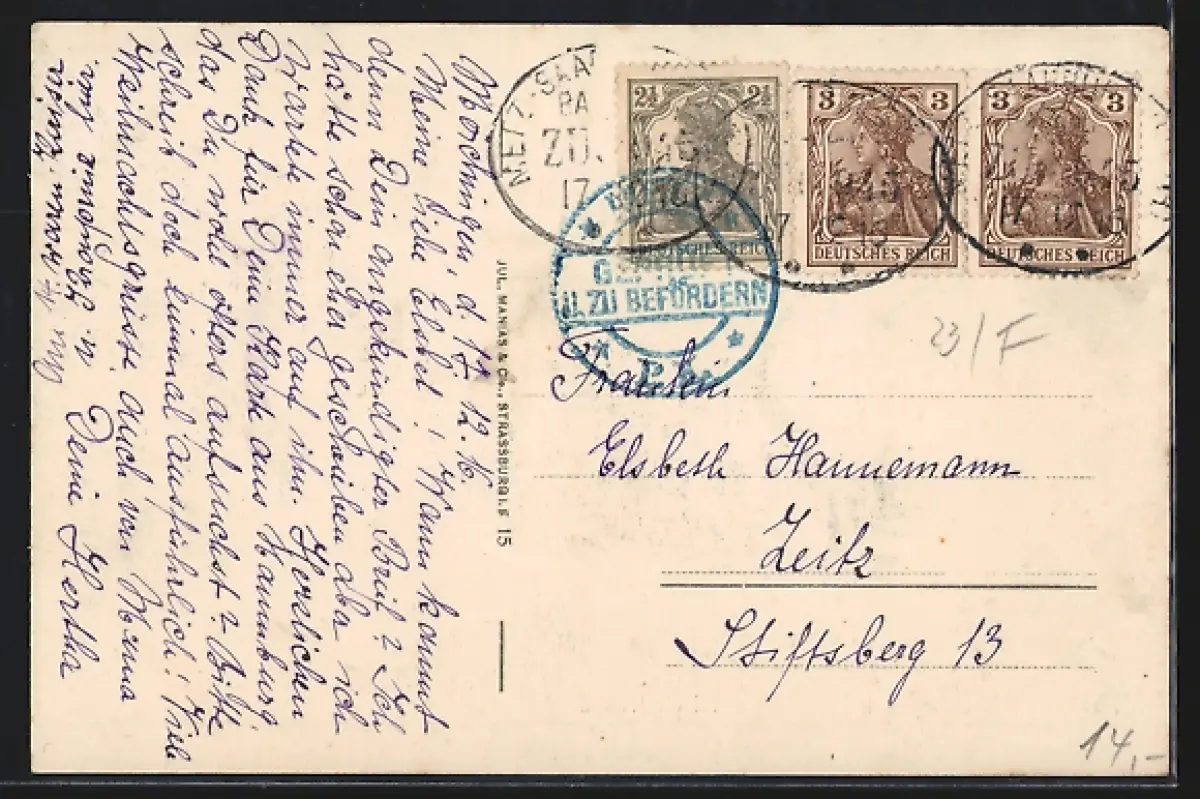 Mörchingen d. 17. 12. 16
Meine liebe Elsbet! Wann kommt
denn Dein angekündigter Brief? Ich
hätte schon eher geschrieben aber ich
wartete immer auf ihn. Herzlichen
Dank für Deine Karte aus Naumburg
das Du wohl öfters aufsuchst? Bitte
schreib doch einmal ausführlich! Viele
Weihnachtsgrüsse auch von Mama
Deine Hertha
JUL. MANIAS & Cie., STRASSBURG I. E 15
METZ-SAAR
ZUG
17
2½ 2½
DEUTSCHES REICH
3 3
DEUTSCHES REICH
3 3
DEUTSCHES REICH
17 12 16
U. ZU BEFÖRDERN
23/F
Fräulein
Elsbeth Hannemann
Zeitz
Stiftsberg 13
14,-